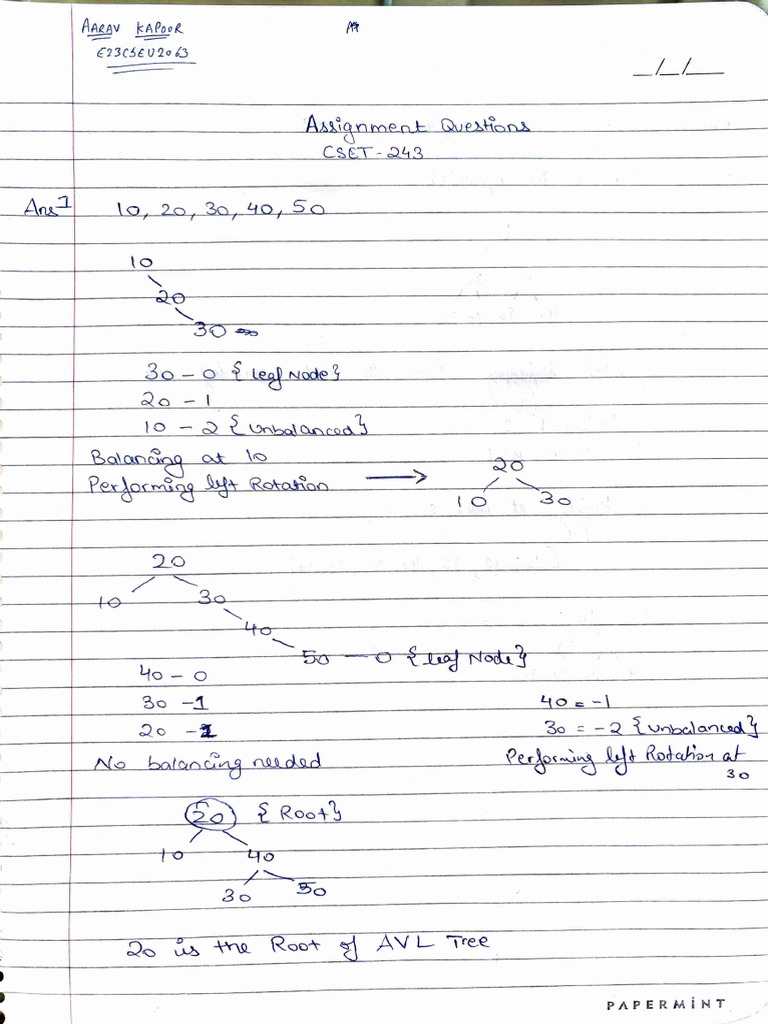 AARAV KAPOOR
E23CSEU2063
_/_/_
Assignment Questions
CSET-243
Ans 1 10, 20, 30, 40, 50
10
20
30
30 - 0 {Leaf Node}
20 - 1
10 - 2 {Unbalanced}
Balancing at 10
Performing left Rotation →
20
10 30
20
10 30
40
50 - 0 {leaf Node}
40 - 0
30 - 1
20 -
No balancing needed
40 = -1
30 = -2 {Unbalanced}
Performing left Rotation at
30
20 {Root}
10 40
30 50
20 is the Root of AVL Tree
PAPERMINT